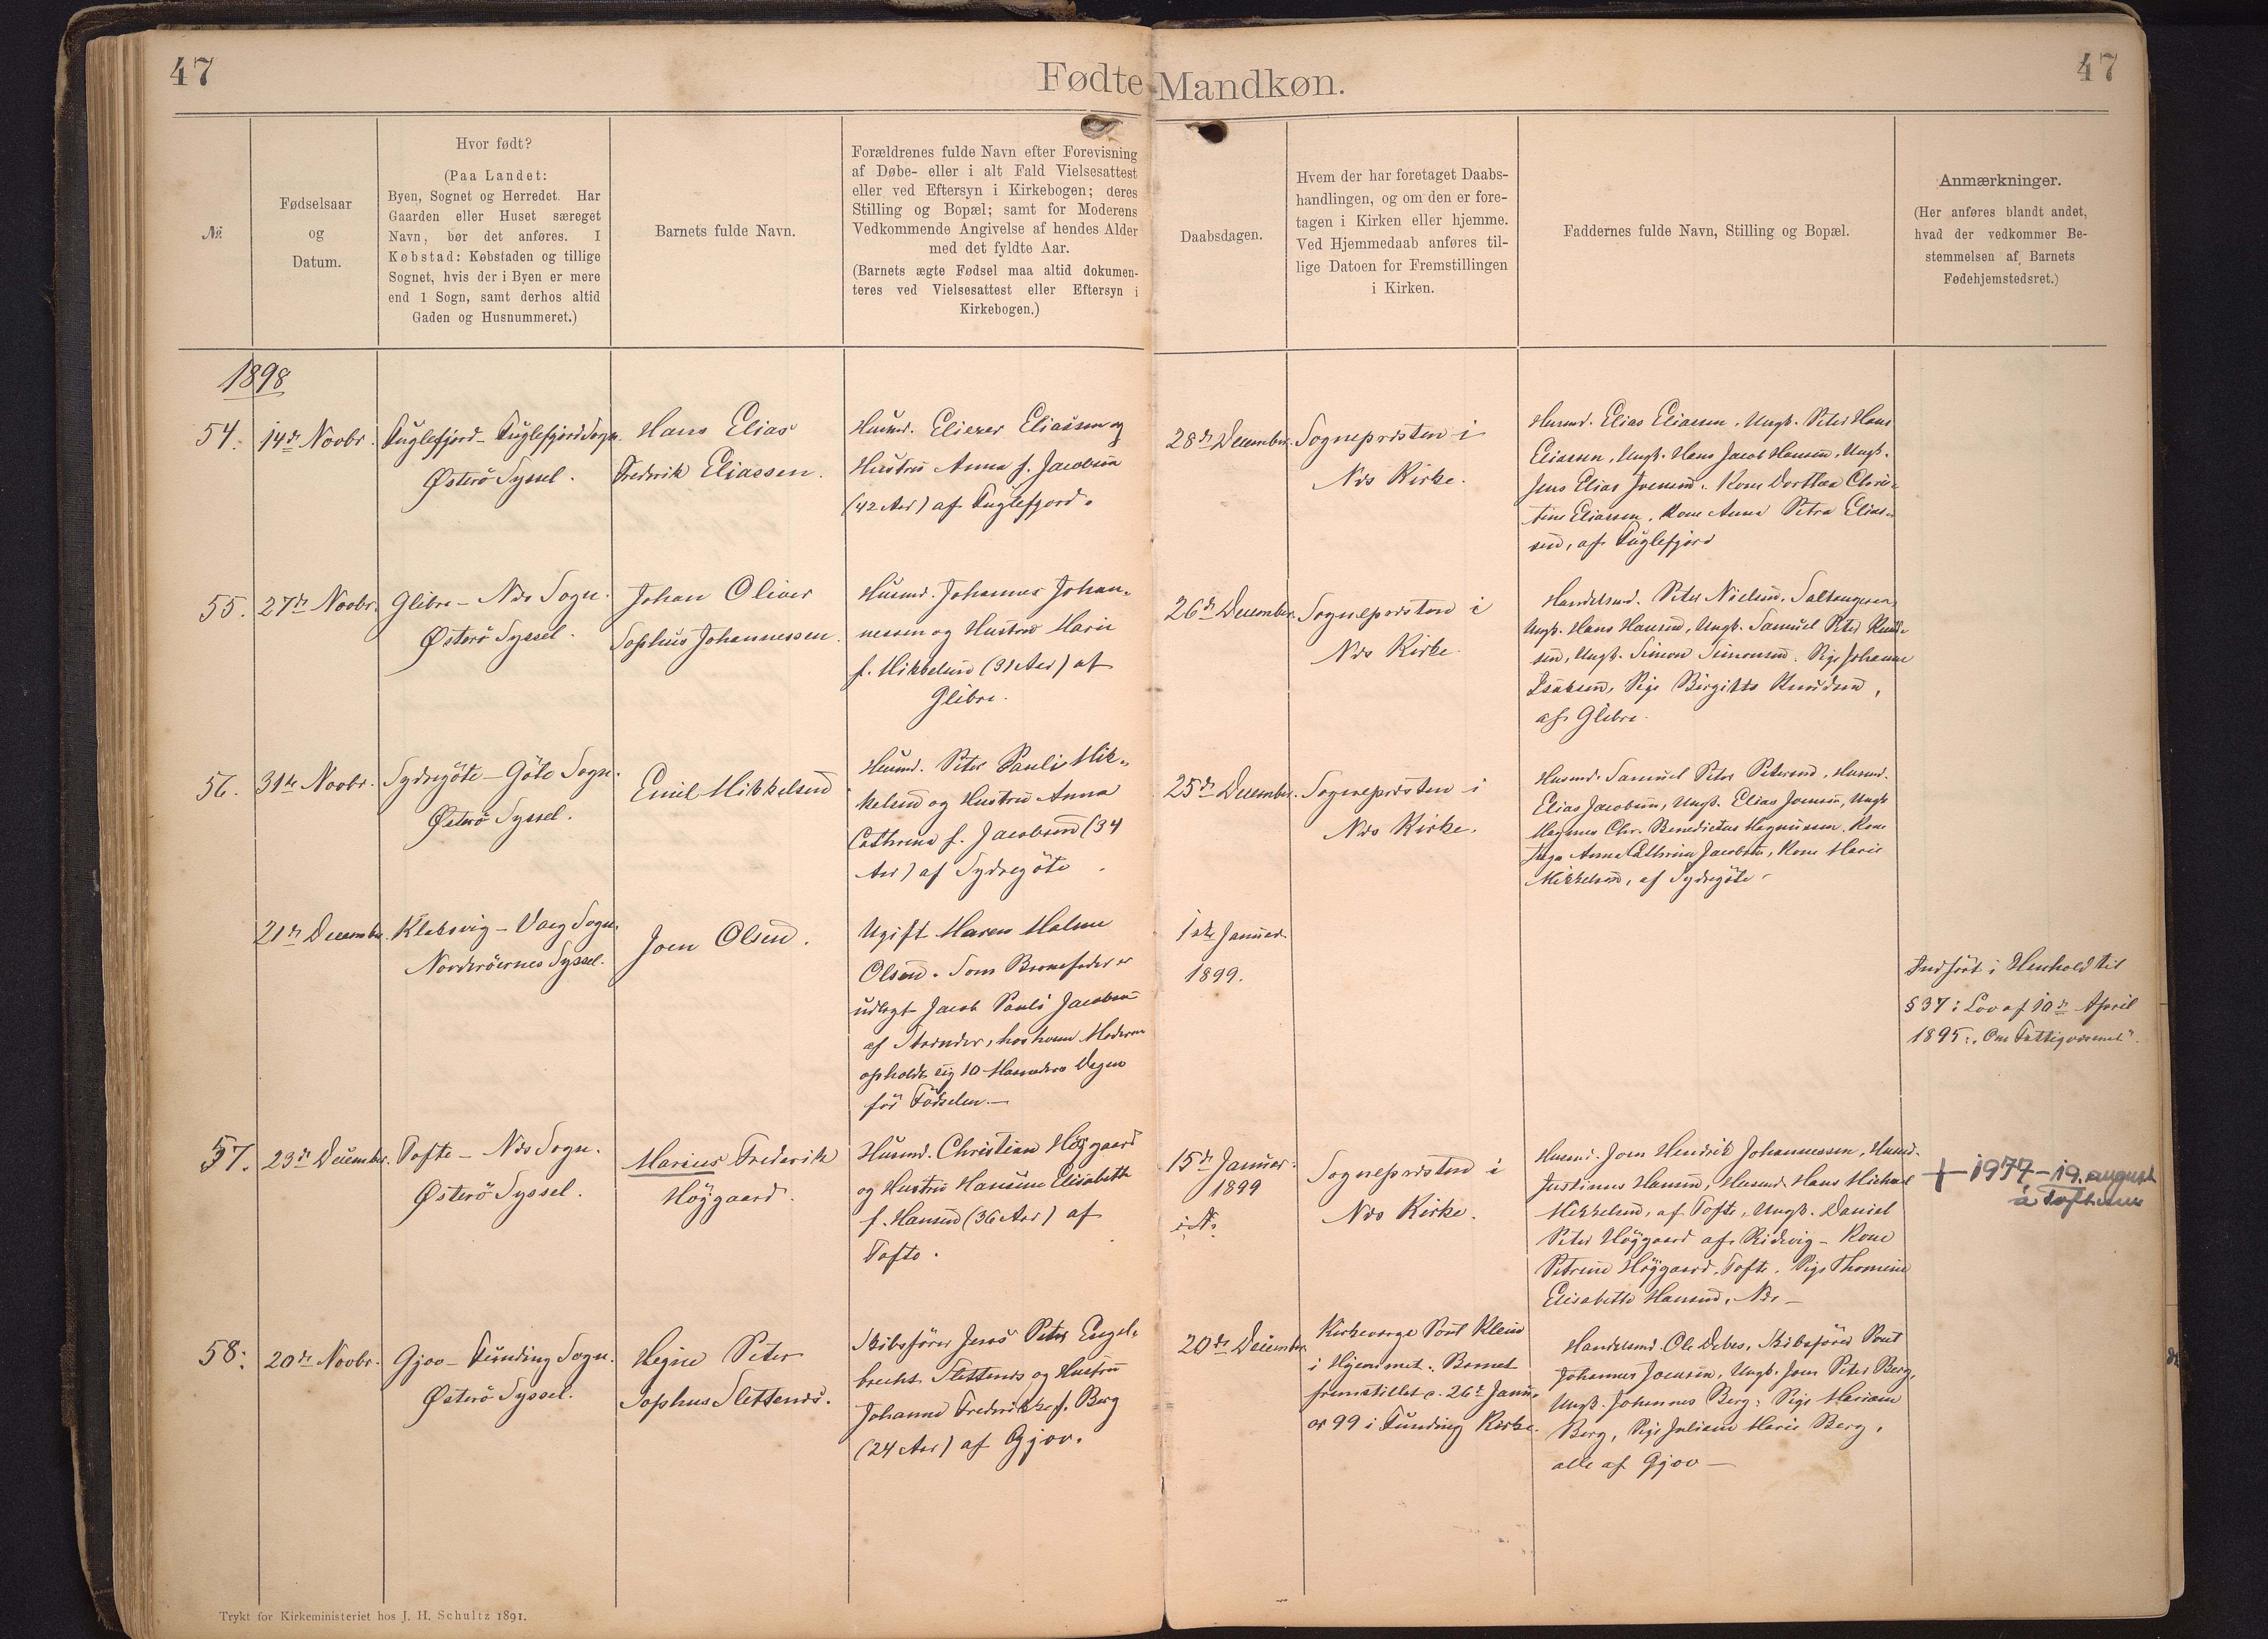 47
Fødte Mandkøn.
47
№
Fødselsaar
og
Datum.
Hvor født?
(Paa Landet:
Byen, Sognet og Herredet. Har
Gaarden eller Huset særeget
Navn, bør det anføres. I
Købstad: Købstaden og tillige
Sognet, hvis der i Byen er mere
end 1 Sogn, samt derhos altid
Gaden og Husnummeret.)
Barnets fulde Navn.
Forældrenes fulde Navn efter Forevisning
af Døbe- eller i alt Fald Vielsesattest
eller ved Eftersyn i Kirkebogen; deres
Stilling og Bopæl; samt for Moderens
Vedkommende Angivelse af hendes Alder
med det fyldte Aar.
(Barnets ægte Fødsel maa altid dokumen-
teres ved Vielsesattest eller Eftersyn i
Kirkebogen.)
Daabsdagen.
Hvem der har foretaget Daabs-
handlingen, og om den er fore-
tagen i Kirken eller hjemme.
Ved Hjemmedaab anføres til-
lige Datoen for Fremstillingen
i Kirken.
Faddernes fulde Navn, Stilling og Bopæl.
Anmærkninger.
(Her anføres blandt andet,
hvad der vedkommer Be-
stemmelsen af Barnets
Fødehjemstedsret.)
1898
54.
14de Novbr.
Fuglefjord - Fuglefjord Sogn.
Østerö Syssel.
Hans Elias
Frederik Eliassen.
Husmd. Elieser Eliassen og
Hustru Anna f. Jacobsen
(42 Aar) af Fuglefjord.
28de December.
Sognepræsten i
Næs Kirke.
Husmd. Elias Eliassen, Ungk. Peter Hans
Eliassen, Ungk. Hans Jacob Hansen, Ungk.
Jens Elias Joensen. Kone Dorthea Chris-
tine Eliassen, Kone Anna Petra Elias-
sen, af Fuglefjord
55.
27de Novbr.
Glibre - Næs Sogn.
Østerö Syssel.
Johan Oliver
Sophus Johannessen.
Husmd. Johannes Johan-
nessen og Hustru Marie
f. Mikkelsen (31 Aar) af
Glibre.
26de December.
Sognepræsten i
Næs Kirke.
Handelsmd. Peter Nielsen, Saltangeren,
Ungk. Hans Hansen, Ungk. Samuel Peter Knud-
sen, Ungk. Simon Simonsen. Pige Johanne
Isaksen, Pige Birgitte Knudsen,
af Glibre.
56.
31te Novbr.
Sydregöte - Göte Sogn.
Østerö Syssel.
Emil Mikkelsen
Husmd. Peter Pauli Mik-
kelsen og Hustru Anna
Cathrina f. Jacobsen (34
Aar) af Sydregöte.
25de December.
Sognepræsten i
Næs Kirke.
Husmd. Samuel Peter Petersen, Husmd.
Elias Jacobsen, Ungk. Elias Joensen, Ungk.
Magnus Chr. Benedictus Magnussen. Kone
Anna Cathrina Jacobsen, Kone Marie
Mikkelsen, af Sydregöte.
21de December.
Klaksvig - Vaag Sogn.
Norderöernes Syssel.
Joen Olsen.
Ugift Maren Malene
Olsen. Som Barnefader er
udlagt Jacob Pauli Jacobsen
af Strender, hos hvem Moderen
opholdt sig 10 Maaneders Dagen
för Födselen.—
1ste Januar
1899.
Indfört i Henhold til
§ 37 i Lov af 10de April
1895: "Om Fattigvæsenet".
57.
23de December.
Tofte - Næs Sogn.
Østerö Syssel.
Marius Frederik
Höygaard.
Husmd. Christian Höygaard
og Hustru Hansine Elisabeth
f. Hansen (36 Aar) af
Tofte.
15de Januar
1899
Sognepræsten i
Næs Kirke.
Husmd. Joen Hendrik Johannessen, Husmd.
Justinus Hansen, Husmd. Hans Michael
Mikkelsen, af Tofte, Ungk. Daniel
Peter Höygaard af Ridevig - Kone
Petrine Höygaard, Tofte, Pige Thomine
Elisabeth Hansen, Næs —
+ 1977 - 19. august
á Toftum
58.
20de Novbr.
Gjov - Funding Sogn.
Østerö Syssel.
Heine Peter
Sophus Slettenes.
Skibsförer Jens Peter Engel-
brecht Slettenes og Hustru
Johanne Frederikke f. Berg
(24 Aar) af Gjov.
20de December
Kirkeværge Poul Klein
i Hjemmet. Barnet
fremstillet d. 26e Janu-
ar 99 i Funding Kirke.
Handelsmd. Ole Debes, Skibsförer Poul
Johannes Joensen, Ungk. Joen Peter Berg,
Ungk. Johannes Berg. Pige Mariane
Berg, Pige Juliane Marie Berg,
alle af Gjov —
Trykt for Kirkeministeriet hos J. H. Schultz 1891.